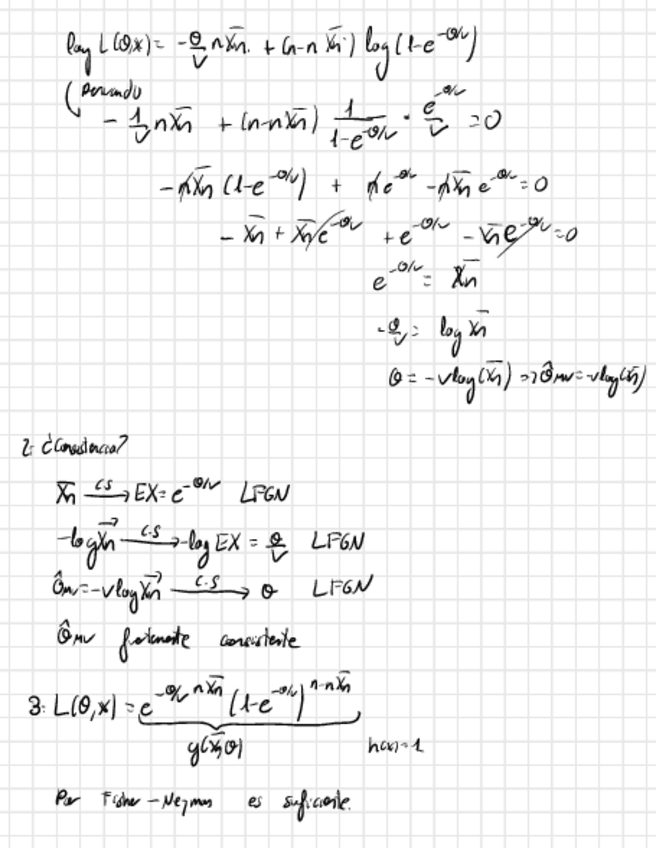 log L(θ,x) = -θ/v n x̄n + (n-n x̄n) log(1-e^(-θ/v))
(Derivando
- 1/v n x̄n + (n-n x̄n) 1/(1-e^(-θ/v)) · e^(-θ/v)/v = 0
- n x̄n (1-e^(-θ/v)) + n e^(-θ/v) - n x̄n e^(-θ/v) = 0
- x̄n + x̄n e^(-θ/v) + e^(-θ/v) - x̄n e^(-θ/v) = 0
e^(-θ/v) = x̄n
-θ/v = log x̄n
θ = -v log(x̄n) => θ̂MV = -v log(x̄n)
2: ¿Consistencia?
x̄n →(c.s) EX = e^(-θ/v) LFGN
-log x̄n →(c.s) -log EX = θ/v LFGN
θ̂MV = -v log x̄n →(c.s) θ LFGN
θ̂MV fuertemente consistente
3: L(θ,x) = e^(-θ/v n x̄n) (1-e^(-θ/v))^(n-n x̄n)
g(x̄n,θ) h(x)=1
Por Fisher-Neyman es suficiente.